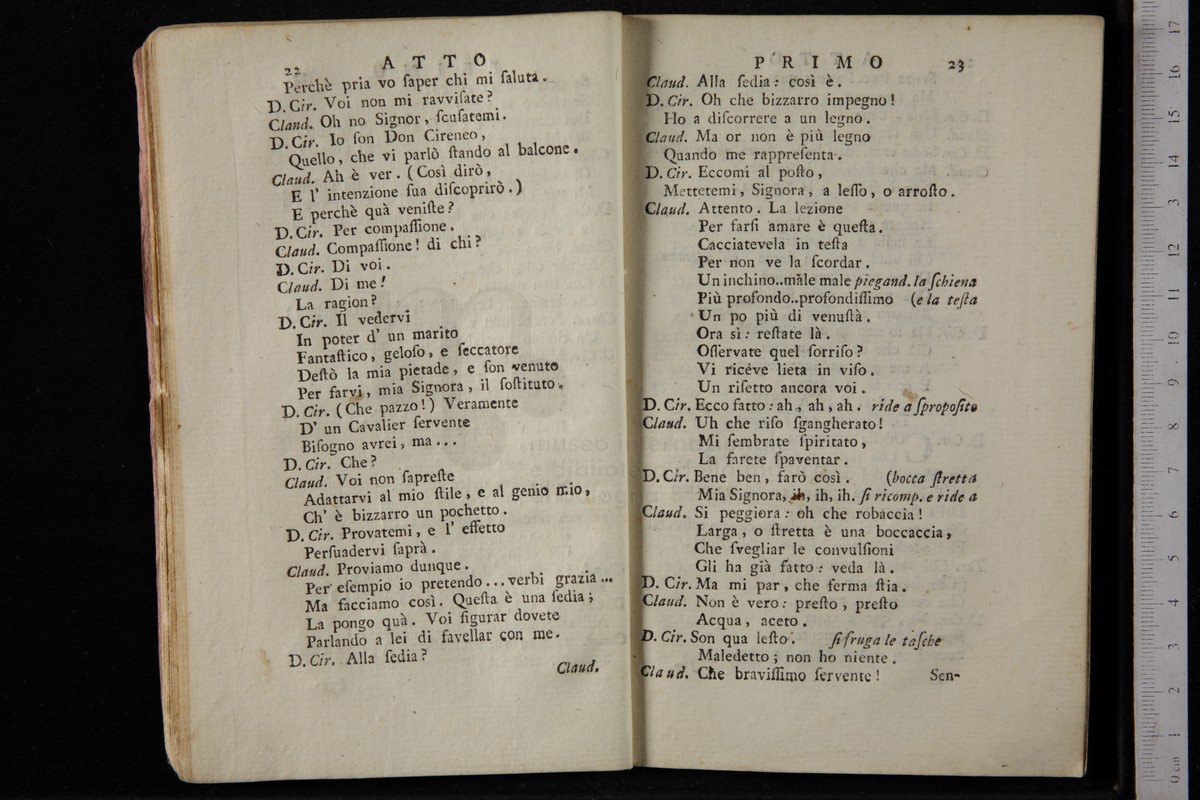 22 ATTO
Perchè pria vo ſaper chi mi ſaluta.
D. Cir. Voi non mi ravviſate?
Claud. Oh no Signor, ſcuſatemi.
D. Cir. Io ſon Don Cireneo,
Quello, che vi parlò ſtando al balcone.
Claud. Ah è ver. (Così dirò,
E l' intenzione ſua diſcoprirò.)
E perchè quà veniſte?
D. Cir. Per compaſſione.
Claud. Compaſſione! di chi?
D. Cir. Di voi.
Claud. Di me!
La ragion?
D. Cir. Il vedervi
In poter d' un marito
Fantaſtico, geloſo, e ſeccatore
Deſtò la mia pietade, e ſon venuto
Per farvi, mia Signora, il ſoſtituto.
D. Cir. (Che pazzo!) Veramente
D' un Cavalier ſervente
Biſogno avrei, ma...
D. Cir. Che?
Claud. Voi non ſapreſte
Adattarvi al mio ſtile, e al genio mio,
Ch' è bizzarro un pochetto.
D. Cir. Provatemi, e l' effetto
Perſuadervi ſaprà.
Claud. Proviamo dunque.
Per eſempio io pretendo... verbi grazia...
Ma facciamo così. Queſta è una ſedia;
La pongo quà. Voi figurar dovete
Parlando a lei di favellar con me.
D. Cir. Alla ſedia?
Claud.
PRIMO 23
Claud. Alla ſedia: così è.
D. Cir. Oh che bizzarro impegno!
Ho a diſcorrere a un legno.
Claud. Ma or non è più legno
Quando me rappreſenta.
D. Cir. Eccomi al poſto,
Mettetemi, Signora, a leſſo, o arroſto.
Claud. Attento. La lezione
Per farſi amare è queſta.
Cacciatevela in teſta
Per non ve la ſcordar.
Un inchino..male male piegand. la ſchiena
Più profondo..profondiſſimo (e la teſta
Un po più di venuſtà.
Ora sì: reſtate là.
Oſſervate quel ſorriſo?
Vi riceve lieta in viſo.
Un riſetto ancora voi.
D. Cir. Ecco fatto: ah, ah, ah. ride a ſpropoſito
Claud. Uh che riſo ſgangherato!
Mi ſembrate ſpiritato,
La farete ſpaventar.
D. Cir. Bene ben, farò così. (bocca ſtretta
Mia Signora, ih, ih, ih. ſi ricomp. e ride a
Claud. Si peggiora: oh che robaccia!
Larga, o ſtretta è una boccaccia,
Che ſvegliar le convulſioni
Gli ha già fatto: veda là.
D. Cir. Ma mi par, che ferma ſtia.
Claud. Non è vero: preſto, preſto
Acqua, aceto.
D. Cir. Son qua leſto. ſi fruga le taſche
Maledetto; non ho niente.
Claud. Che braviſſimo ſervente! Sen-